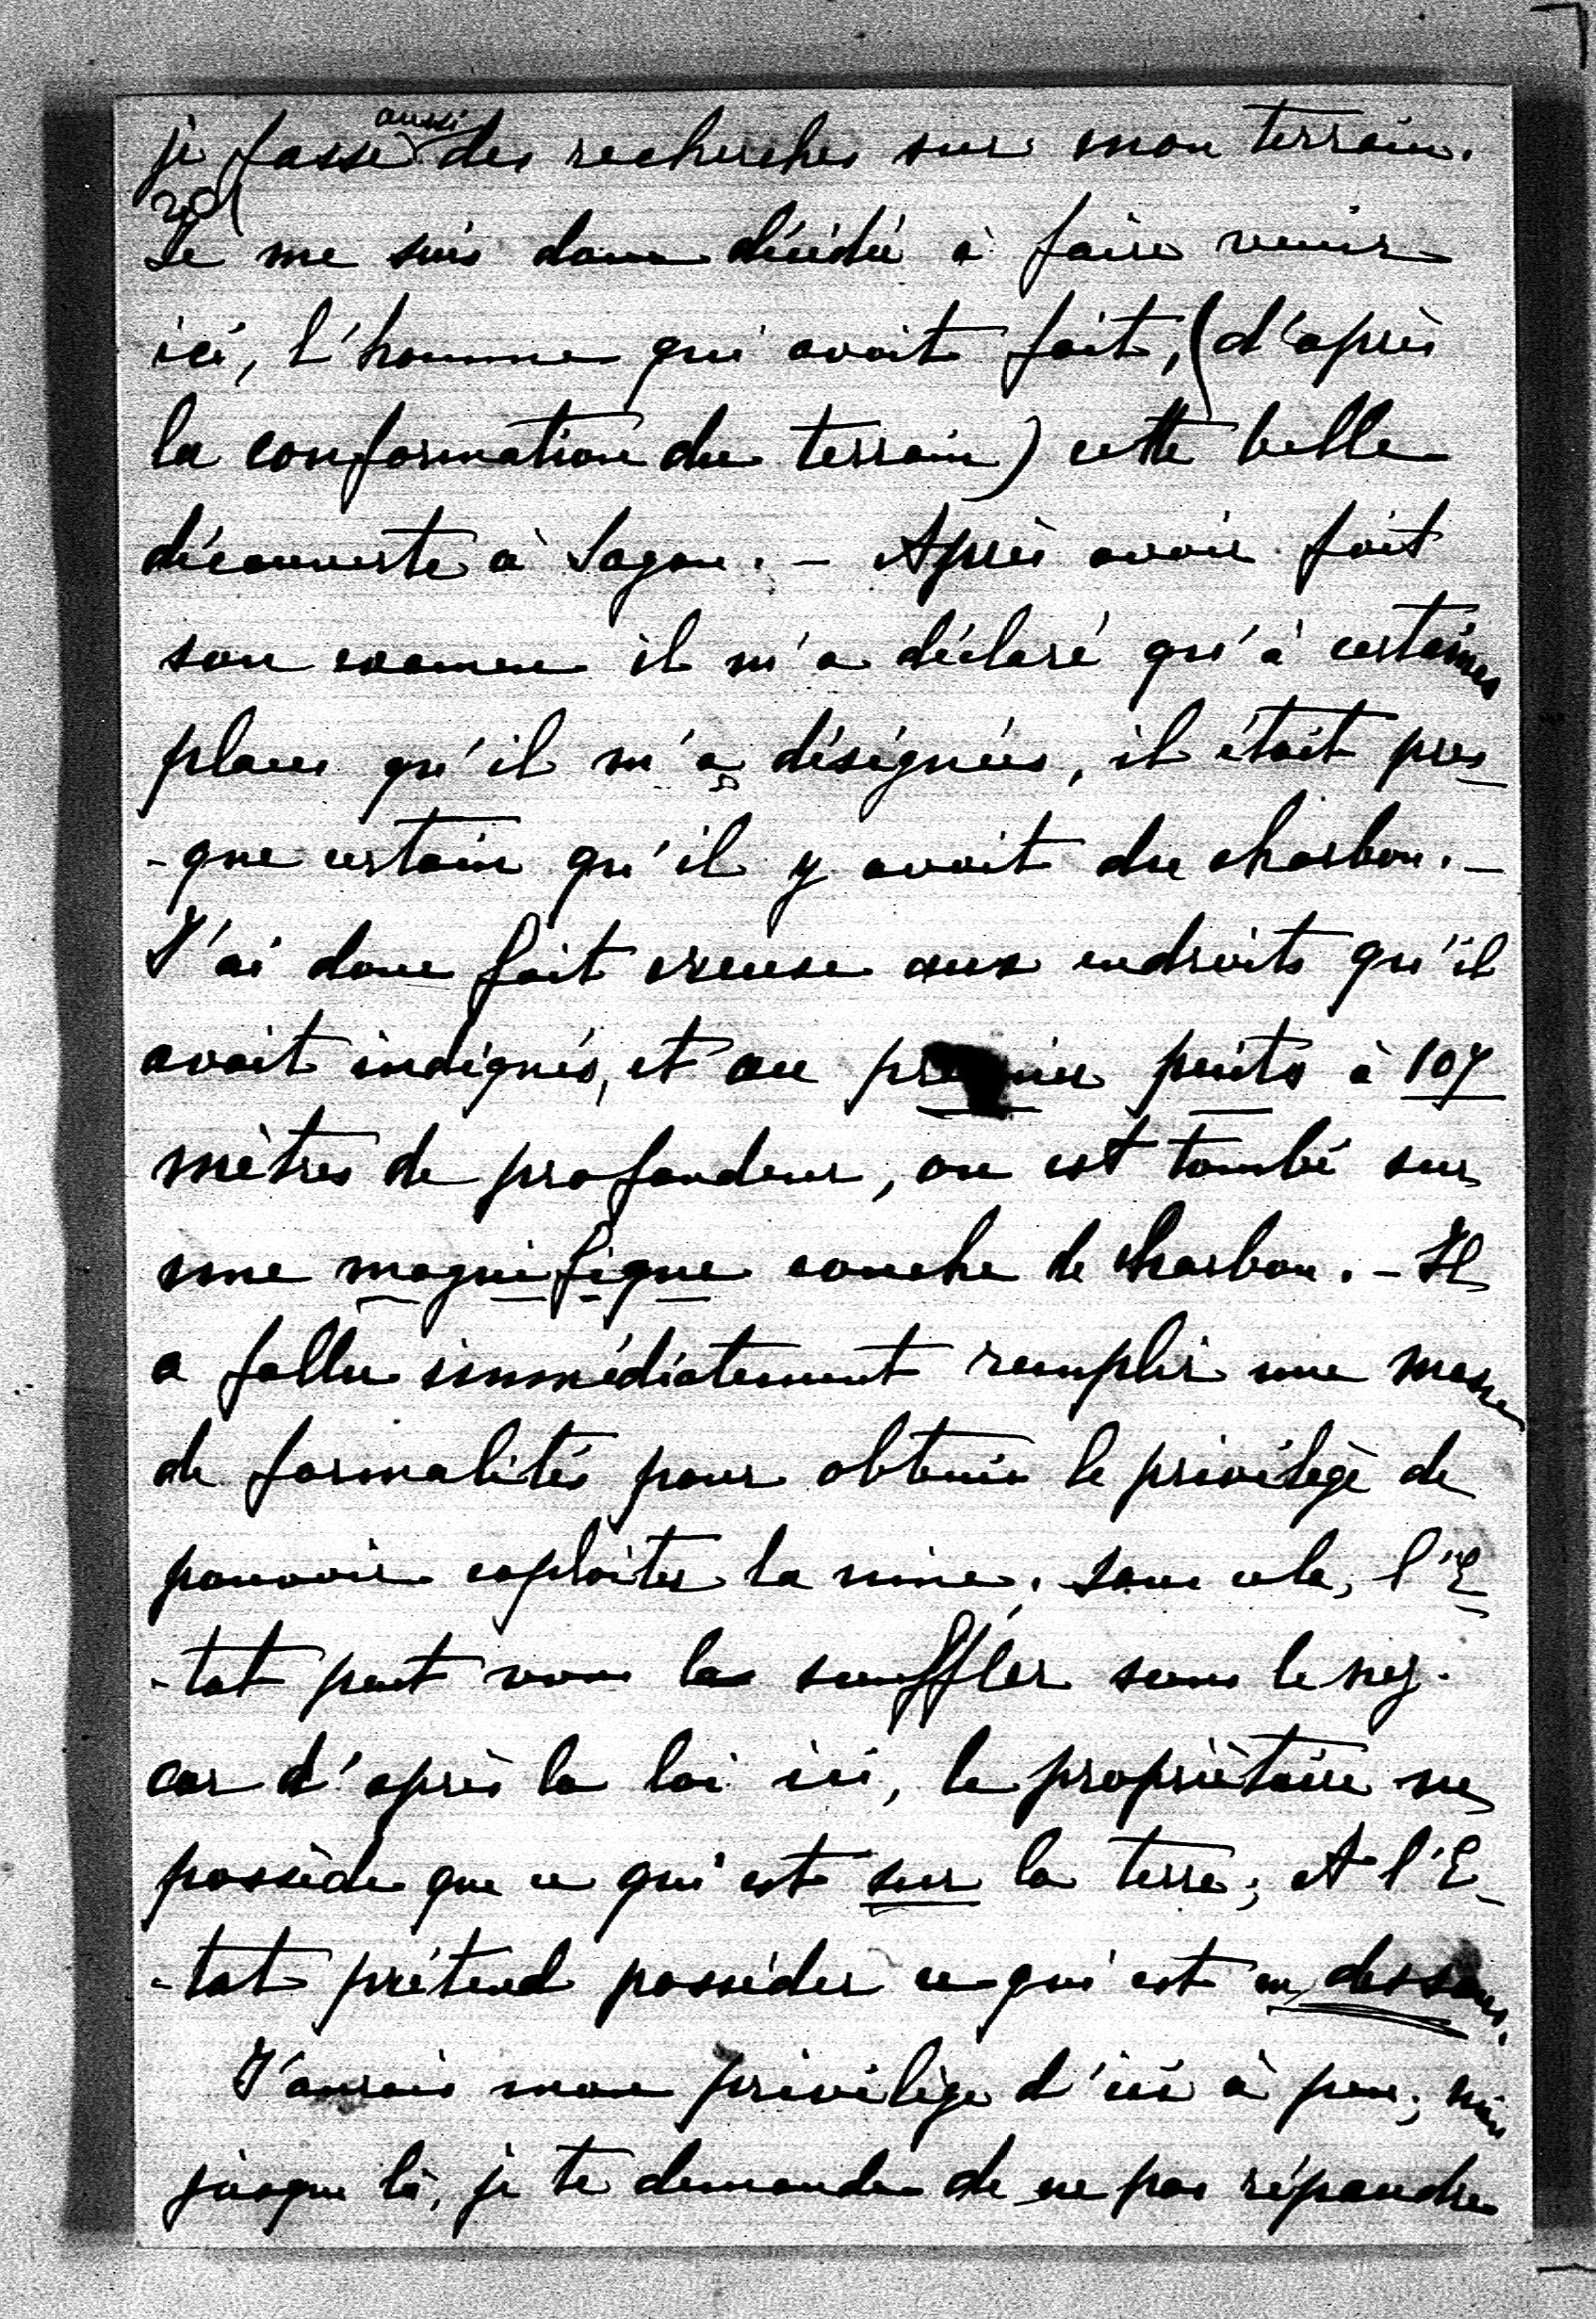 aussi
je fasse des recherches sur mon terrain.
20/
Je me suis donc décidé à faire venir
ici, l'homme qui avait fait, (d'après
la conformation du terrain) cette belle
découverte à Sagan. - Après avoir fait
son examen il m'a déclaré qu'à certaines
places qu'il m'a désignées, il était pres
-que certain qu'il y avait du charbon. -
J'ai donc fait creuser aux endroits qu'il
avait indiqués, et au premier puits à 107
mètres de profondeur, on est tombé sur
une magnifique couche de charbon. - Il
a fallu immédiatement remplir une masse
de formalités pour obtenir le privilège de
pouvoir exploiter la mine, sans cela, l'E
-tat peut vous la souffler sous le nez.
car d'après la loi ici, le propriètaire ne
possède que ce qui est sur la terre; et l'E
-tat prétend posséder ce qui est en dessous.
J'aurais mon privilège d'ici à peu; mais
jusque là, je te demande de ne pas répandre